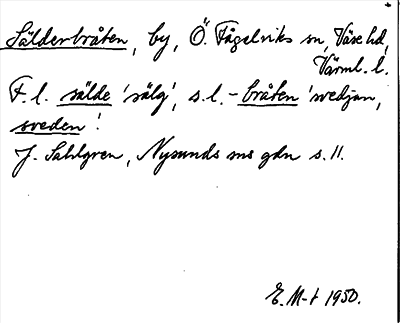 Sälderbråten, by, Ö. Fågelviks sn, Väse hd,
Värml. l.
F. l. sälde 'sälg', s. l. - bråten 'svedjan,
sveden'.
J. Sahlgren, Nysunds sns gdn s. 11.
E. M-t 1950.